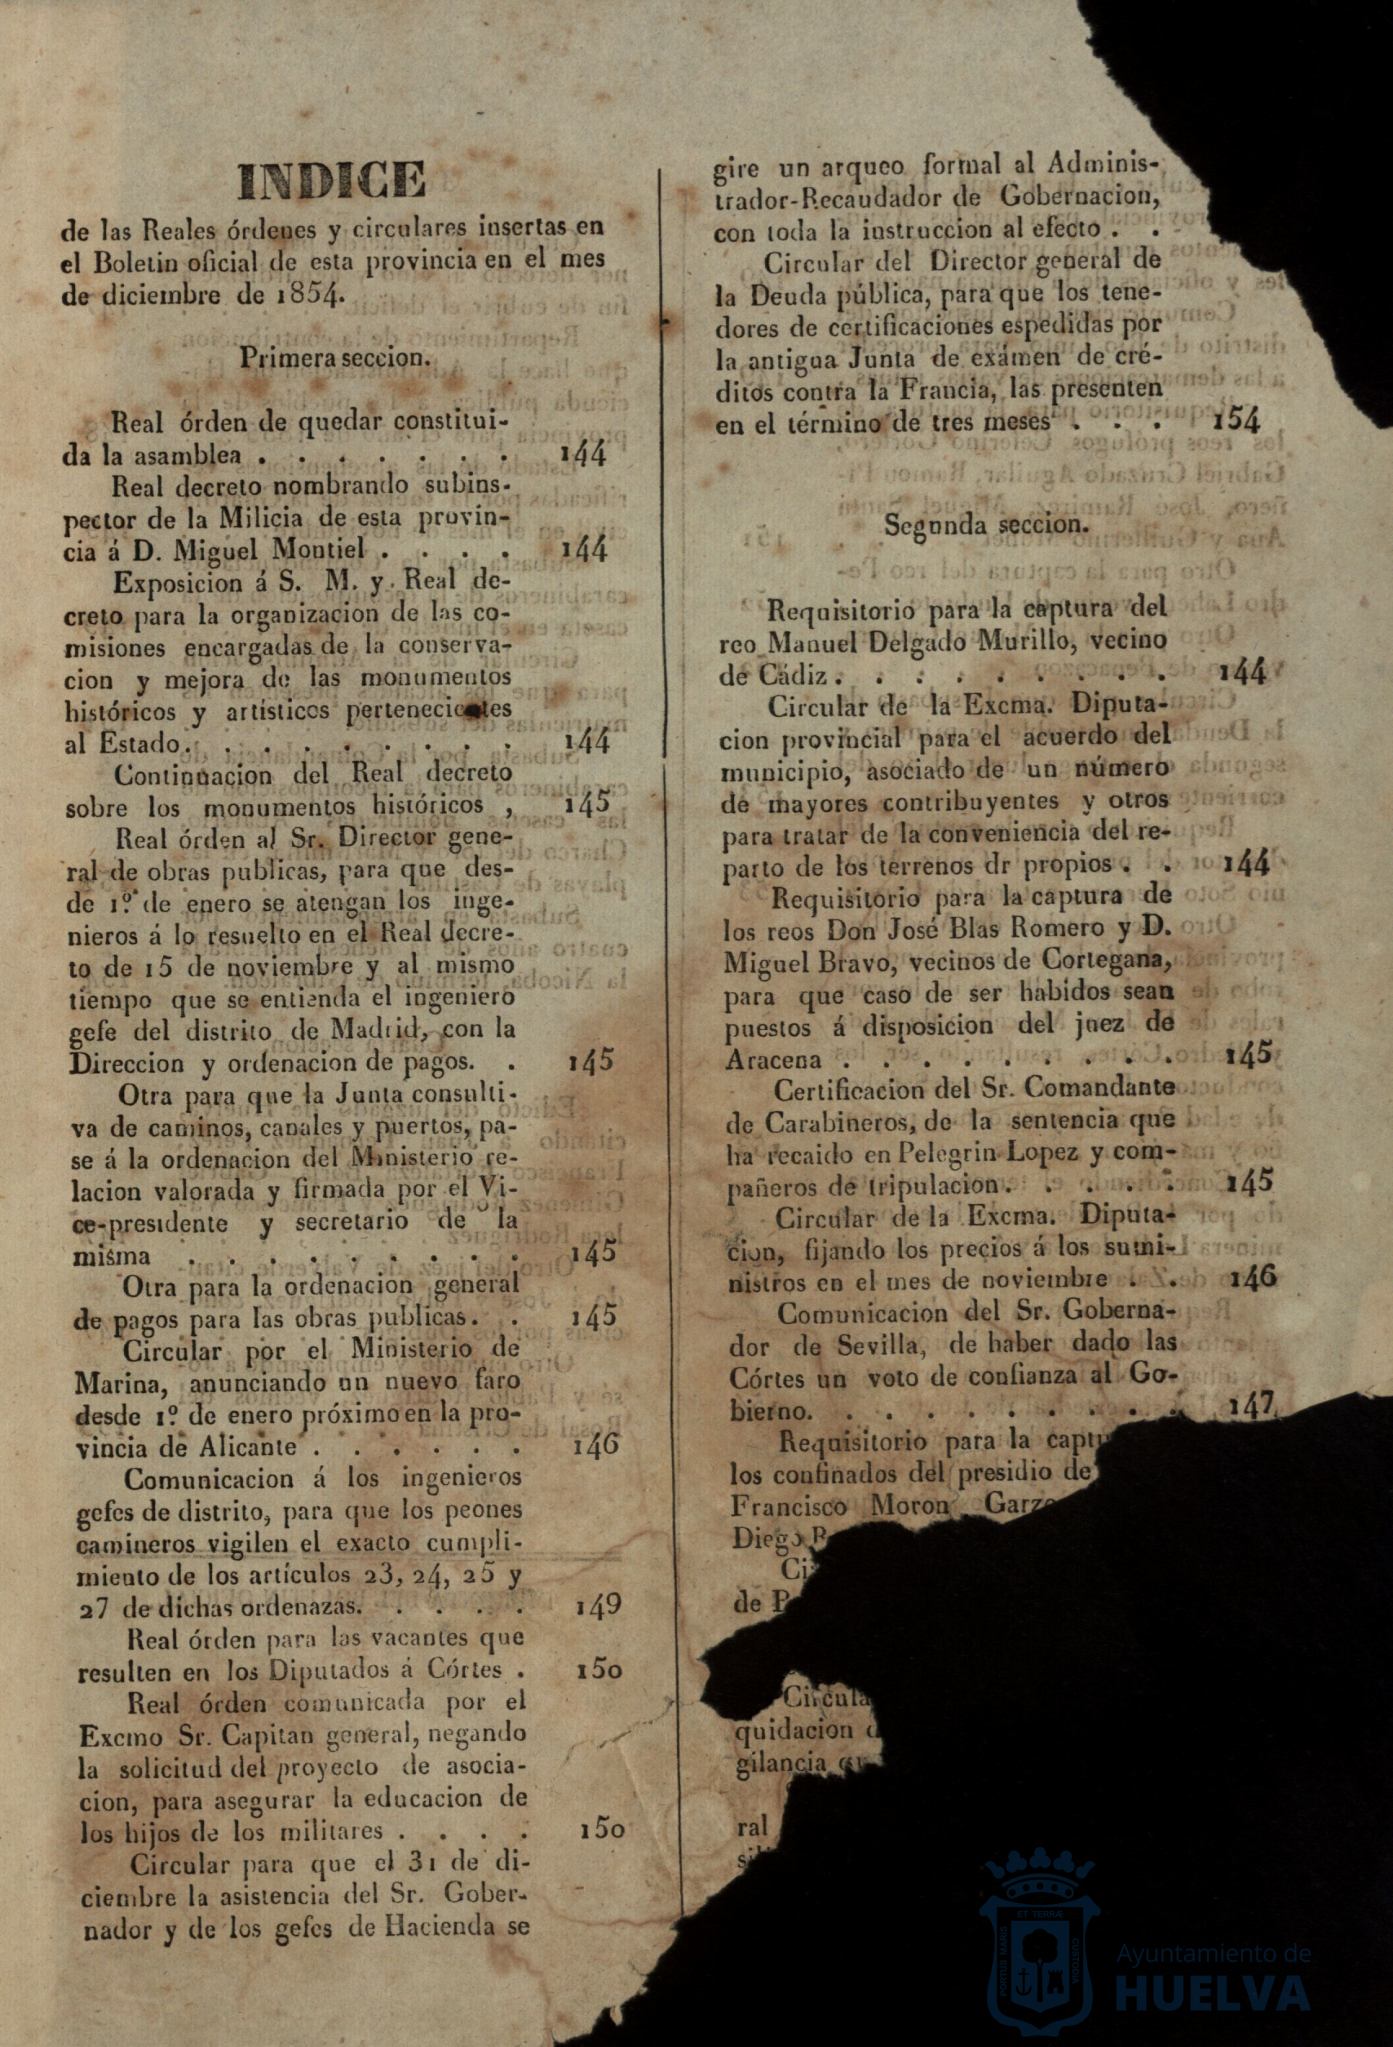 INDICE
de las Reales órdenes y circulares insertas en
el Boletin oficial de esta provincia en el mes
de diciembre de 1854.
Primera seccion.
Real órden de quedar constitui-
da la asamblea . . . . . . . 144
Real decreto nombrando subins-
pector de la Milicia de esta provin-
cia á D. Miguel Montiel . . . . 144
Exposicion á S. M. y Real de-
creto para la organizacion de las co-
misiones encargadas de la conserva-
cion y mejora de las monumentos
históricos y artísticos pertenecientes
al Estado. . . . . . . . . . 144
Continuacion del Real decreto
sobre los monumentos históricos , 145
Real órden al Sr. Director gene-
ral de obras publicas, para que des-
de 1.º de enero se atengan los inge-
nieros á lo resuelto en el Real decre-
to de 15 de noviembre y al mismo
tiempo que se entienda el ingeniero
gefe del distrito de Madrid, con la
Direccion y ordenacion de pagos. . 145
Otra para que la Junta consulti-
va de caminos, canales y puertos, pa-
se á la ordenacion del Ministerio re-
lacion valorada y firmada por el Vi-
ce-presidente y secretario de la
misma . . . . . . . . . 145
Otra para la ordenacion general
de pagos para las obras publicas. . 145
Circular por el Ministerio de
Marina, anunciando un nuevo faro
desde 1.º de enero próximo en la pro-
vincia de Alicante . . . . . . 146
Comunicacion á los ingenieros
gefes de distrito, para que los peones
camineros vigilen el exacto cumpli-
miento de los artículos 23, 24, 25 y
27 de dichas ordenazas. . . . . 149
Real órden para las vacantes que
resulten en los Diputados á Córtes . 150
Real órden comunicada por el
Excmo Sr. Capitan general, negando
la solicitud del proyecto de asocia-
cion, para asegurar la educacion de
los hijos de los militares . . . . 150
Circular para que el 31 de di-
ciembre la asistencia del Sr. Gober-
nador y de los gefes de Hacienda se
gire un arqueo formal al Adminis-
trador-Recaudador de Gobernacion,
con toda la instruccion al efecto . .
Circular del Director general de
la Deuda pública, para que los tene-
dores de certificaciones espedidas por
la antigua Junta de exámen de cré-
ditos contra la Francia, las presenten
en el término de tres meses . . . 154
Segunda seccion.
Requisitorio para la captura del
reo Manuel Delgado Murillo, vecino
de Cádiz . . . . . . . . . 144
Circular de la Excma. Diputa-
cion provincial para el acuerdo del
municipio, asociado de un número
de mayores contribuyentes y otros
para tratar de la conveniencia del re-
parto de los terrenos dr propios . . 144
Requisitorio para la captura de
los reos Don José Blas Romero y D.
Miguel Bravo, vecinos de Cortegana,
para que caso de ser habidos sean
puestos á disposicion del juez de
Aracena . . . . . . . . . 145
Certificacion del Sr. Comandante
de Carabineros, de la sentencia que
ha recaido en Pelegrin Lopez y com-
pañeros de tripulacion. . . . . 145
Circular de la Excma. Diputa-
cion, fijando los precios á los sumi-
nistros en el mes de noviembre . . 146
Comunicacion del Sr. Goberna-
dor de Sevilla, de haber dado las
Córtes un voto de confianza al Go-
bierno. . . . . . . . . . 147
Requisitorio para la capt
los confinados del presidio de
Francisco Moron Garz
Diego
Ci
de P
Circula
quidacion
gilancia
ral
ET TERRÆ
PORTUS MARIS
CUSTODIA
Ayuntamiento de
HUELVA